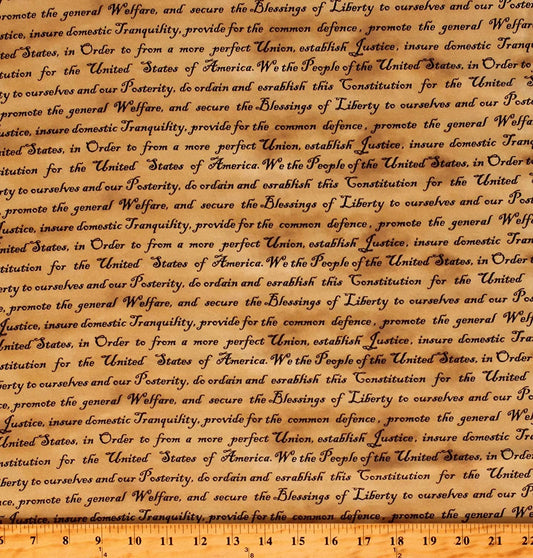 promote the general Welfare, and secure the Blessings of Liberty to ourselves and our Pos
ustice, insure domestic Tranquility, provide for the common defence, promote the general Welf
ited States, in Order to from a more perfect Union, establish Justice, insure domestic Tran
itution for the United States of America. We the People of the United States, in Order to
ty to ourselves and our Posterity, do ordain and esrablish this Constitution for the United S
promote the general Welfare, and secure the Blessings of Liberty to ourselves and our Pos
ustice, insure domestic Tranquility, provide for the common defence, promote the general Welf
ited States, in Order to from a more perfect Union, establish Justice, insure domestic Tranq
titution for the United States of America. We the People of the United States, in Order to
erty to ourselves and our Posterity, do ordain and esrablish this Constitution for the United
, promote the general Welfare, and secure the Blessings of Liberty to ourselves and our Pos
Justice, insure domestic Tranquility, provide for the common defence, promote the general Welf
nited States, in Order to from a more perfect Union, establish Justice, insure domestic Tran
stitution for the United States of America. We the People of the United States, in Order
erty to ourselves and our Posterity, do ordain and esrablish this Constitution for the United
e, promote the general Welfare, and secure the Blessings of Liberty to ourselves and our Po
Justice, insure domestic Tranquility, provide for the common defence, promote the general Welf
United States, in Order to from a more perfect Union, establish Justice, insure domestic Tran
stitution for the United States of America. We the People of the United States, in Order
berty to ourselves and our Posterity, do ordain and esrablish this Constitution for the United
ce, promote the general Welfare, and secure the Blessings of Liberty to ourselves and our Po
Justice, insure domestic Tranquility, provide for the common defence, promote the general Wel
United States, in Order to from a more perfect Union, establish Justice, insure domestic Tra
nstitution for the United States of America. We the People of the United States, in Order
iberty to ourselves and our Posterity, do ordain and esrablish this Constitution for the United
ce, promote the general Welfare, and secure the Blessings of Liberty to ourselves and our P
Justice, insure domestic Tranquility, provide for the common defence, promote the general Wel
6 7 8 9 10 11 12 13 14 15 16 17 18 19 20 21 22